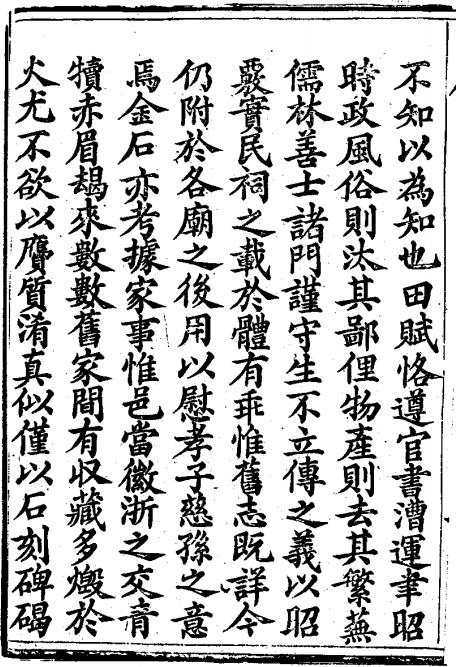 不知以為知也田賦恪遵官書漕運聿昭
時政風俗則汰其鄙俚物產則去其繁蕪
儒林善士諸門謹守生不立傳之義以昭
覈實民祠之載於體有乖惟舊志既詳今
仍附於各廟之後用以慰孝子慈孫之意
焉金石亦考據家事惟邑當徽浙之交青
犢赤眉朅來數數舊家間有収藏多燬於
火尤不欲以贗質淆真似僅以石刻碑碣